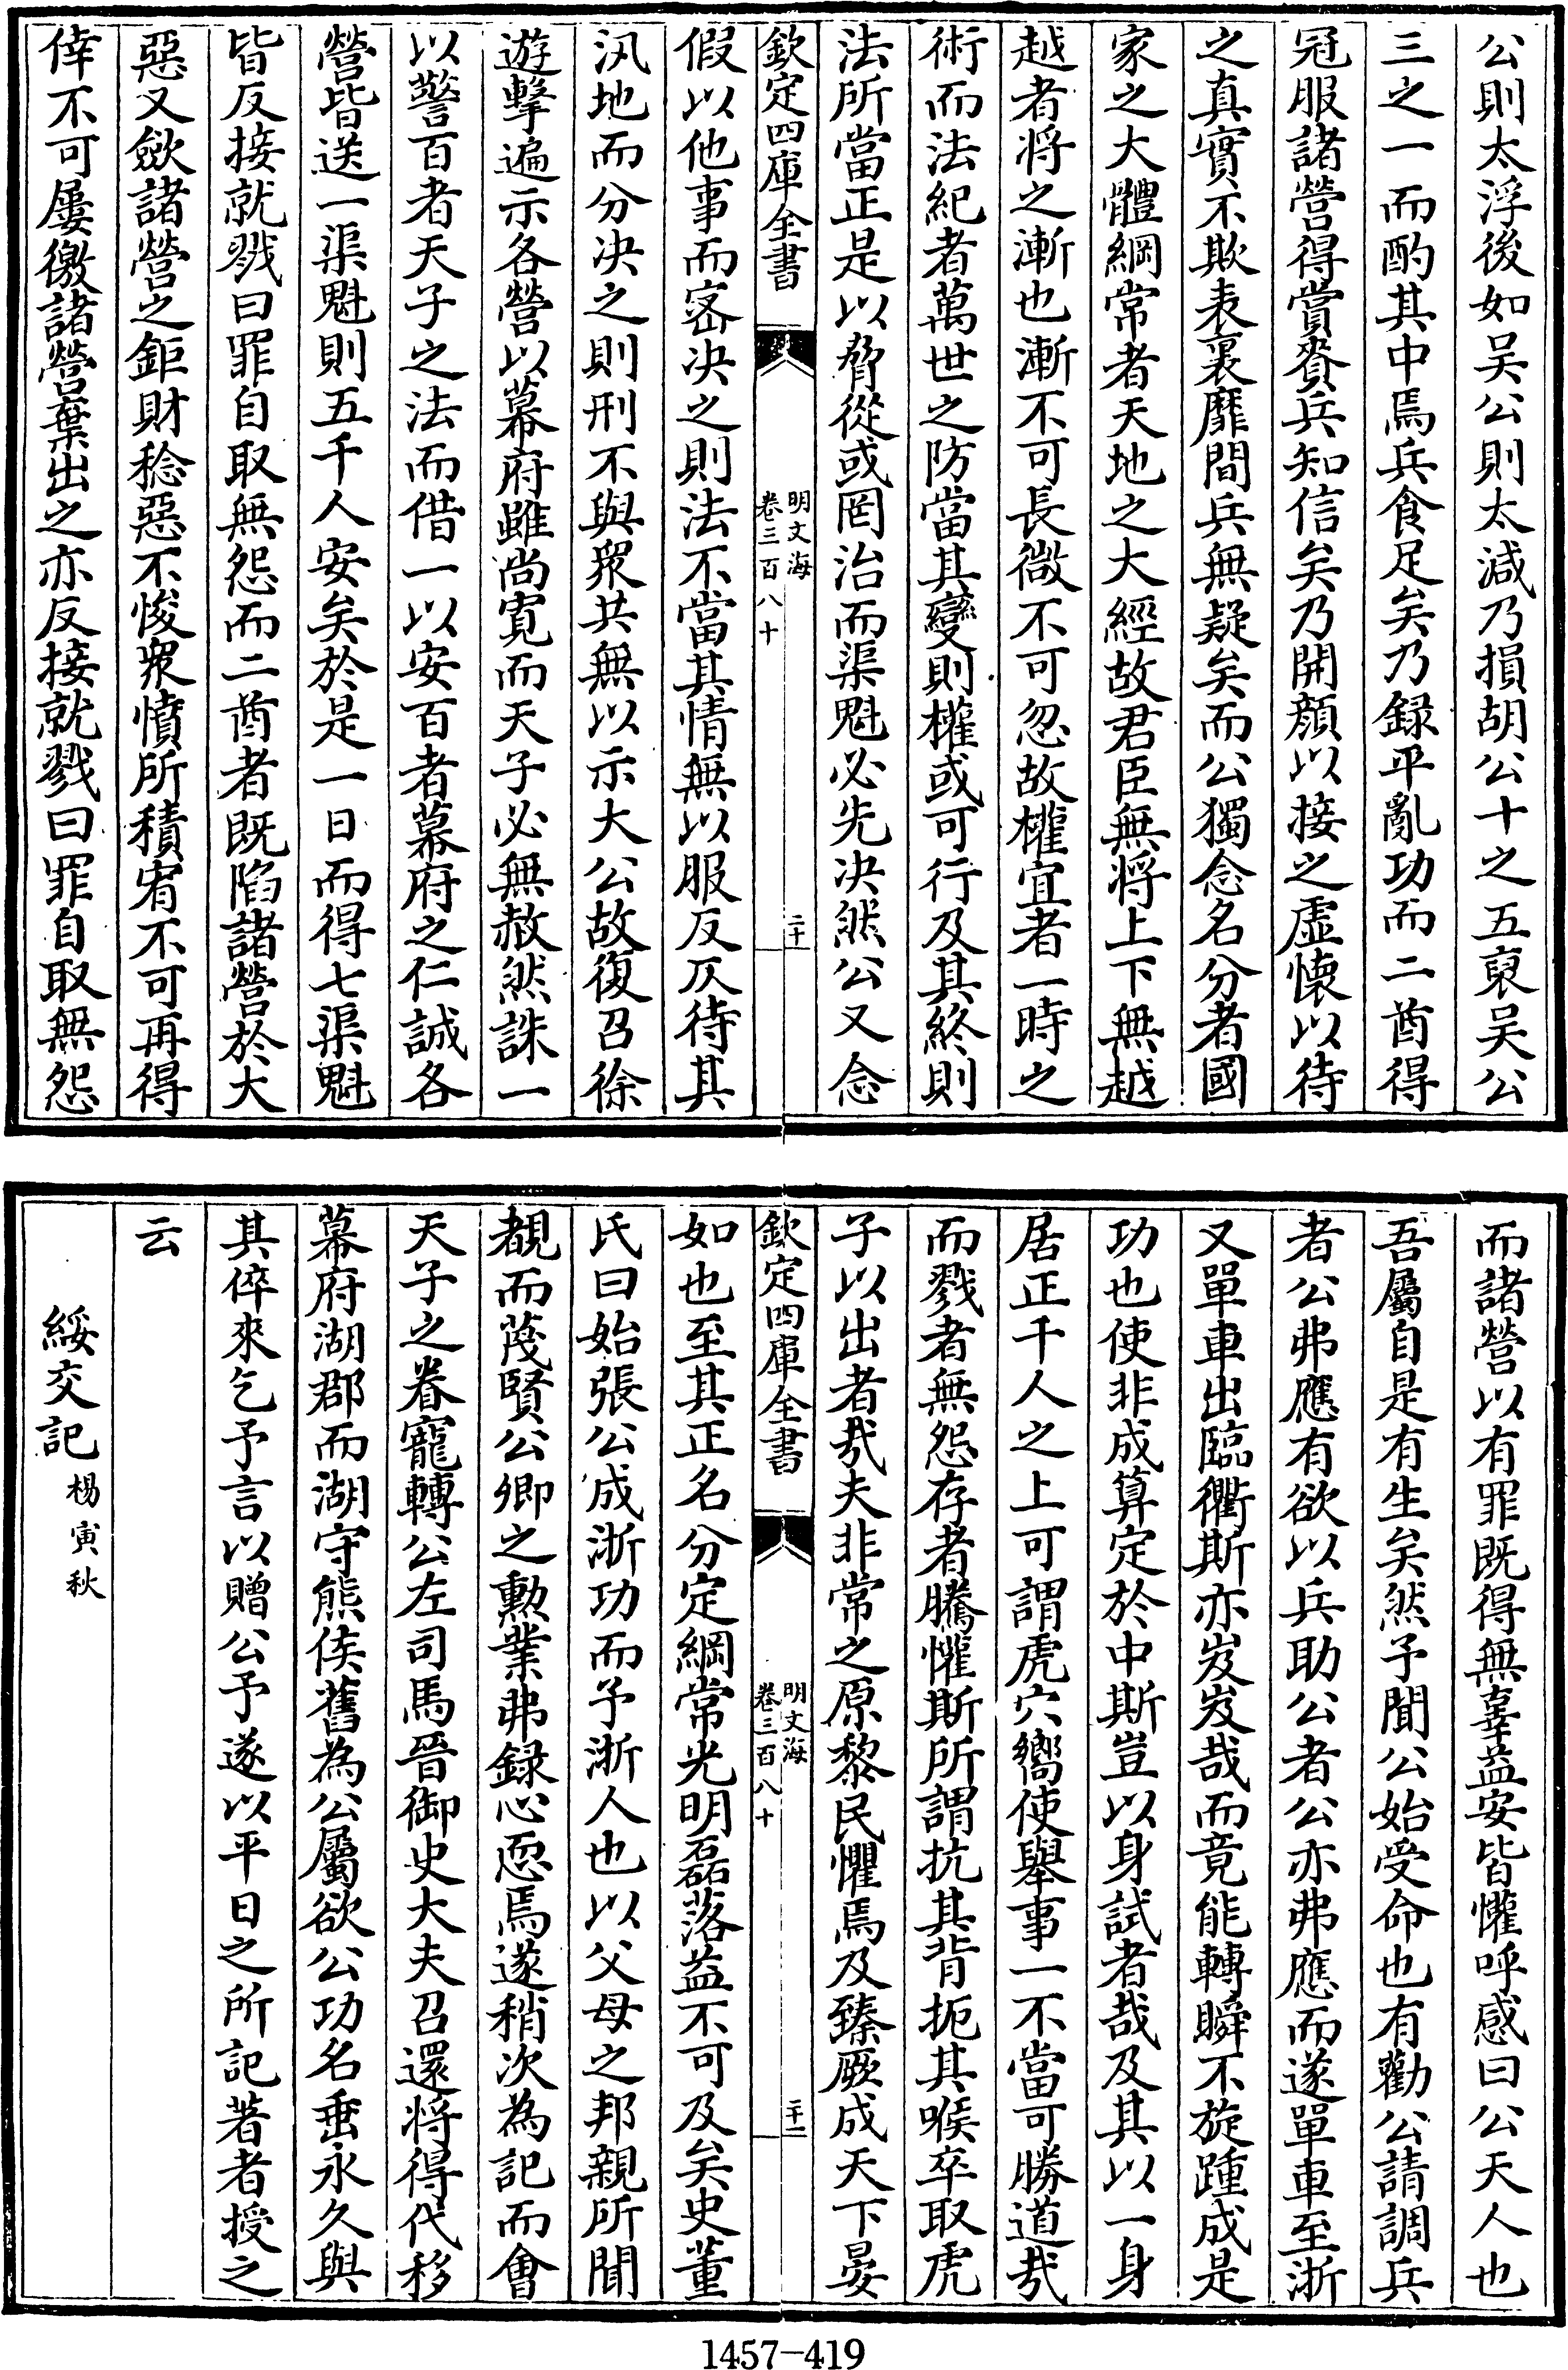 公則太浮後如吴公則太減乃損胡公十之五裒吴公
三之一而酌其中焉兵食足矣乃録平亂功而二酋得
冠服諸營得賞賚兵知信矣乃開顔以接之虚懷以待
之真實不欺表裏靡間兵無疑矣而公獨念名分者國
家之大體綱常者天地之大經故君臣無將上下無越
越者將之漸也漸不可長㣲不可忽故權宜者一時之
術而法紀者萬世之防當其變則權或可行及其終則
法所當正是以脅從或罔治而渠魁必先决然公又念
欽定四庫全書
明文海
卷三百八十
二十
假以他事而宻决之則法不當其情無以服反仄待其
汛地而分决之則刑不與衆共無以示大公故復召徐
遊擊遍示各營以幕府雖尚寛而天子必無赦然誅一
以警百者天子之法而借一以安百者幕府之仁誠各
營皆送一渠魁則五千人安矣於是一日而得七渠魁
皆反接就戮曰罪自取無怨而二酋者既陷諸營於大
惡又歛諸營之鉅財稔惡不悛衆憤所積宥不可再得
倖不可屢徼諸營棄出之亦反接就戮曰罪自取無怨
而諸營以有罪既得無辜益安皆懽呼感曰公天人也
吾屬自是有生矣然予聞公始受命也有勸公請調兵
者公弗應有欲以兵助公者公亦弗應而遂單車至浙
又單車出臨衢斯亦岌岌哉而竟能轉瞬不旋踵成是
功也使非成算定於中斯豈以身試者哉及其以一身
居正千人之上可謂虎穴嚮使舉事一不當可勝道㢤
而戮者無怨存者騰懽斯所謂抗其背扼其喉卒取虎
子以出者㢤夫非常之原黎民懼焉及臻厥成天下晏
欽定四庫全書
明文海
卷三百八十
二十一
如也至其正名分定綱常光明磊落益不可及矣史董
氏曰始張公成浙功而予浙人也以父母之邦親所聞
覩而蔑賢公卿之勲業弗録心恧焉遂稍次為記而會
天子之眷寵轉公左司馬晉御史大夫召還將得代移
幕府湖郡而湖守熊侯舊為公屬欲公功名垂永久與
其倅來乞予言以贈公予遂以平日之所記著者授之
云
綏交記楊寅秋
1457-419